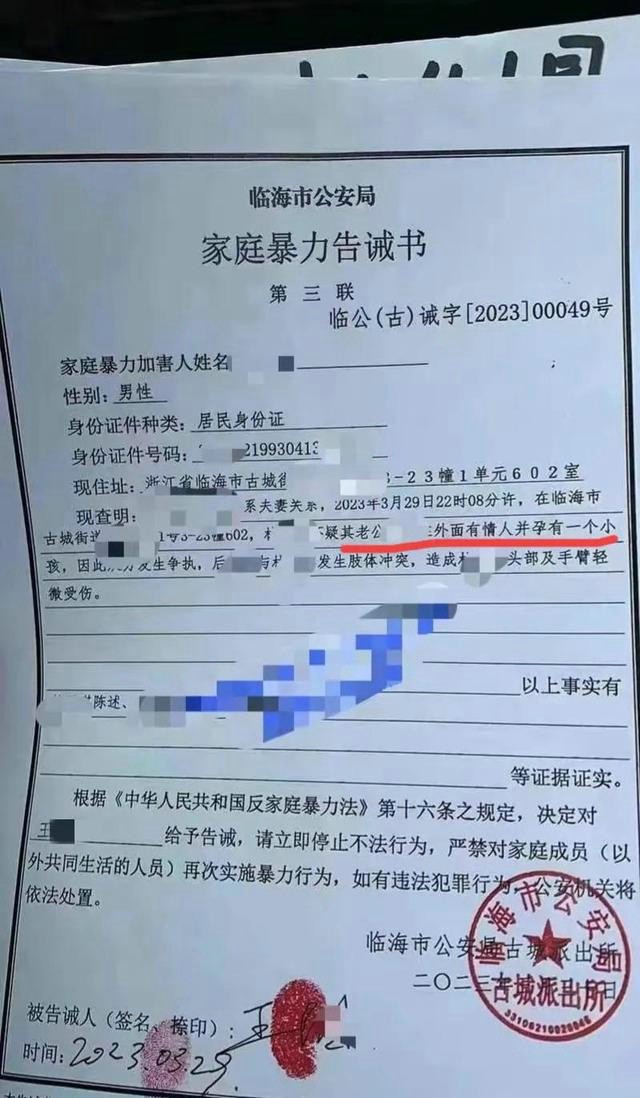 临海市公安局
家庭暴力告诫书
第三联
临公(古)诫字[2023]00049号
家庭暴力加害人姓名
性别: 男性
身份证件种类: 居民身份证
身份证件号码: 219930413
现住址: 浙江省临海市古城街 3-23幢1单元602室
现查明: 系夫妻关系, 2023年3月29日22时08分许, 在临海市
古城街道 1号3-23幢602, 疑其老公 外面有情人并孕有一个小
孩, 因此 发生争执, 后 与 发生肢体冲突, 造成 头部及手臂轻
微受伤。
以上事实有
陈述、
等证据证实。
根据《中华人民共和国反家庭暴力法》第十六条之规定, 决定对
王 给予告诫, 请立即停止不法行为, 严禁对家庭成员 (以
外共同生活的人员) 再次实施暴力行为, 如有违法犯罪行为, 公安机关将
依法处置。
临海市公安局古城派出所
二〇二三年 月 日
临海市公安局
古城派出所
33108210020048
被告诫人 (签名、捺印): 王
时间: 2023.03.29